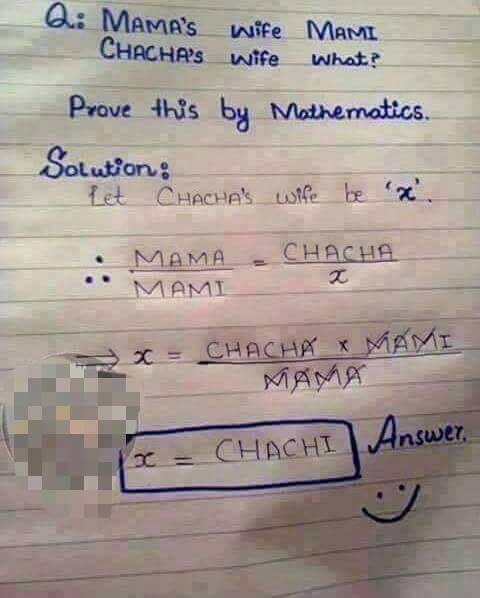 Q: MAMA's wife MAMI
CHACHA's wife what?
Prove this by Mathematics.
Solution:
Let CHACHA's wife be 'x'.
∴ MAMA / MAMI = CHACHA / x
⇒ x = CHACHA × MAMI / MAMA
x = CHACHI Answer.